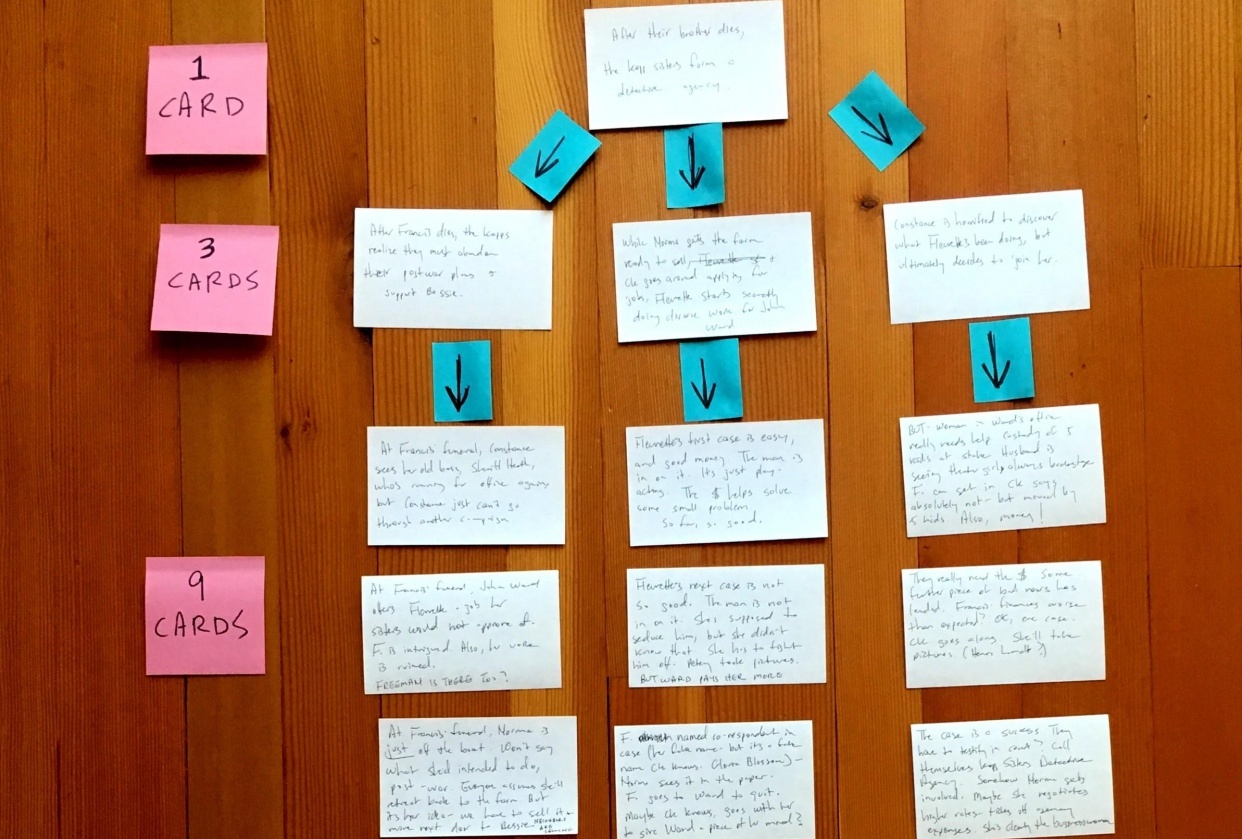 1
CARD
After their brother dies,
the Kopp sisters form a
detective agency.
3
CARDS
After Francis dies, the Kopps
realize they must abandon
their postwar plans +
support Bessie.
While Norma gets the farm
ready to sell, +
CK goes around applying for
jobs, Fleurette starts secretly
doing divorce work for John
Ward
Constance is horrified to discover
what Fleurette's been doing, but
ultimately decides to join her.
9
CARDS
At Francis' funeral, Constance
sees her old boss, Sheriff Heath,
who's running for office again,
but Constance just can't go
through another campaign
Fleurette's first case is easy,
and good money. The man is
in on it. It's just play-
acting. The $ helps solve
some small problem.
So far, so good.
BUT - woman in Ward's office
really needs help custody of 5
kids at stake Husband is
seeing theater girls always backstage
F. can get in CK says
absolutely not - but moved by
5 kids. Also, money!
At Francis' funeral, John Ward
offers Fleurette a job her
sisters would not approve of.
F. is intrigued. Also, her voice
is ruined.
FREEMAN IS THERE TOO?
Fleurette's next case is not
so good. The man is not
in on it. She's supposed to
seduce him, but she didn't
know that She has to fight
him off. Petey took pictures.
BUT WARD PAYS HER MORE
They really need the $ Some
further piece of bad news has
landed. Francis finances worse
than expected? OK, one case.
CK goes along. She'll take
pictures. (Henri Landt?)
At Francis' funeral, Norma is
just off the boat. Won't say
what she'd intended to do,
post-war. Everyone assumes she'll
retreat back to the farm. But
it's her idea - we have to sell it +
move next door to Bessie
F. named co-respondent in
case (her fake name - but it's a fake
name CK knows. Gloria Blossom) -
Norma sees it in the paper.
F. goes to Ward to quit.
Maybe CK knows, goes with her
to give Ward a piece of her mind?
The case is a success They
have to testify in court? Call
themselves Kopp Sisters Detective
Agency. Somehow Norma gets
involved. Maybe she negotiates
higher rates - takes off agency
expenses. She's clearly the businesswoman